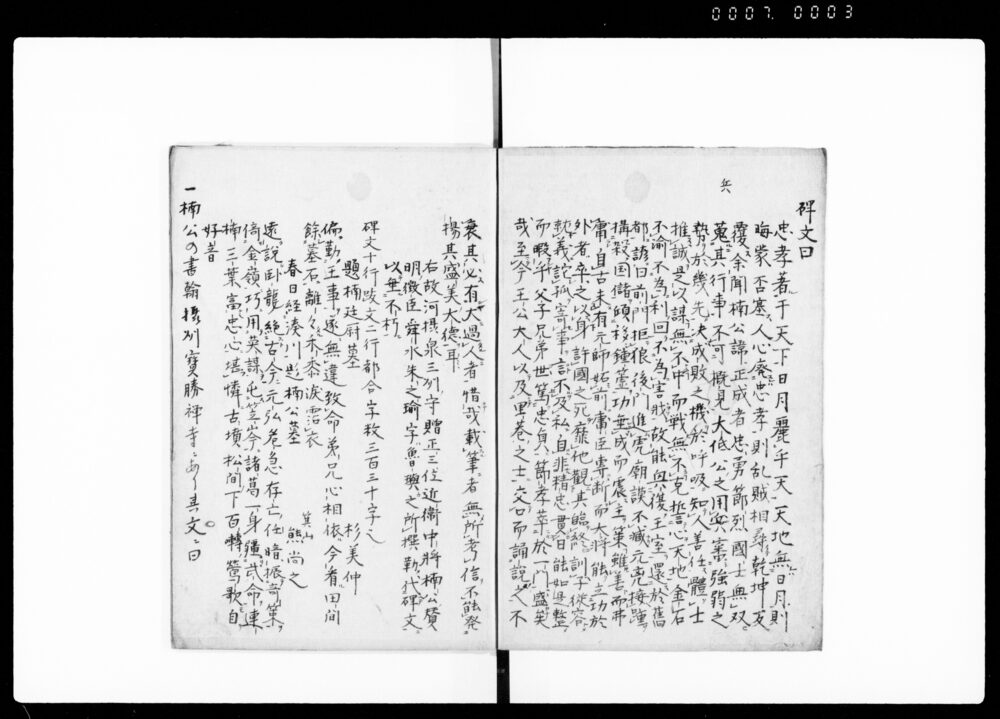 0007 0003
碑文曰
兵
忠孝著于天下日月麗乎天天地無日月則
晦蒙否塞人心廃忠孝則乱賊相尋乾坤反
覆余聞楠公諱正成者忠勇節烈國士無双
蒐其行事不可概見大低公之用兵審強弱之
勢於幾先決成敗之機於呼吸知人善任體士
推誠是以謀無不中而戦無不克誓心天地金石
不渝不為利回不為害怵故能興復王室還於舊
都諺曰前門拒狼後門進虎廟謨不臧元兇接踵
構殺国儲傾移鍾簴功垂成而震主策雖善而弗
庸自古未有元帥妬前庸臣専断而大将能立功於
外者卒之以身許國之死靡他観其臨終訓子従容
就義託孤寄事言不及私自非精忠貫日能如是整
而暇乎父子兄弟世篤忠貞節孝萃於一門盛矣
哉至今王公大人以及里巷之士交口而誦説之不
衰其必有大過人者惜哉載筆者無所考信不能発
揚其盛美大徳耳
右故河摂泉三州守贈正三位近衛中将楠公賛
明徴臣舜水朱之瑜字魯璵之所撰勒代碑文
以垂不朽
碑文十行跋文二行都合字数三百三十字之
題楠廷尉墓 杉美仲
偏勤王事遂無違致命弟兄心相依今看田間
餘墓石離々禾黍涙霑衣
春日経湊川題楠公墓 箕山 熊尚之
遠説臥龍絶古今元弘危急存亡任暗振奇策
倚金嶺巧用英謀屯笠岑諸葛一身殲武命連
楠三葉富忠心堪憐古墳松間下百囀鶯歌自
好音
一楠公の書翰摂列寶勝禅寺ニあり其文ニ曰